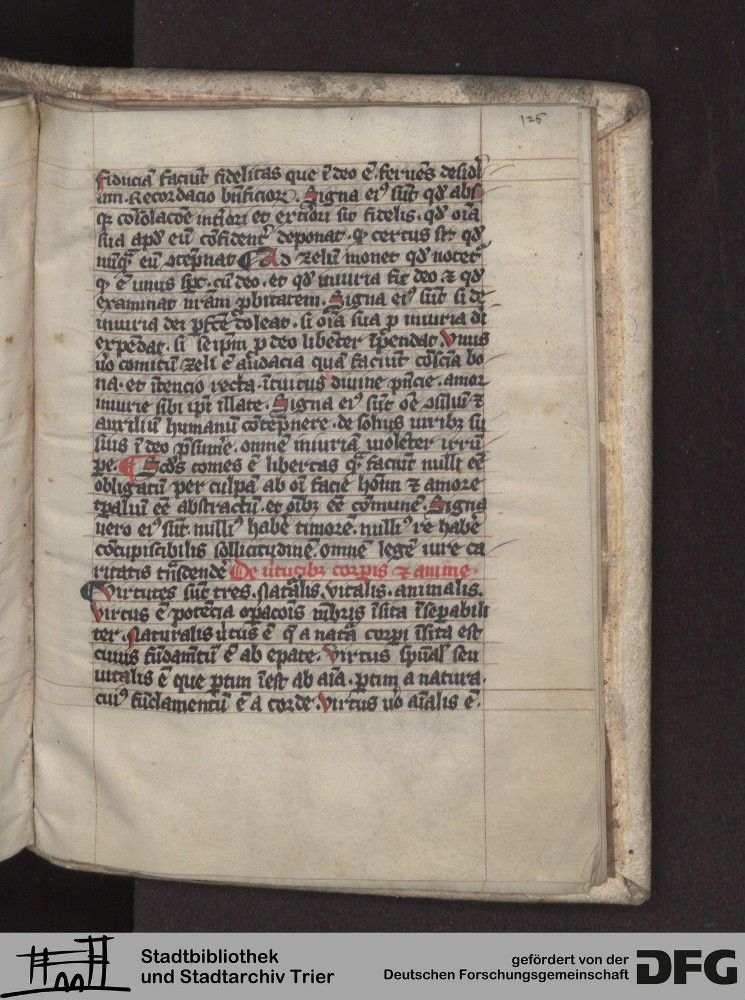 125
fiduciā faciūt fidelitas que ī deo ē feruēs desid
iūm. Recordacio bn̄ficior᷒. Signa ei᷒ sūt qd̓ abs
qꝫ cōsolacōe int̓iori et ext̓iori sit fidelis. qd̓ oīa
sua apd̓ eū cōfident̓ deponat. ꝙ certus sit qd̓
nūq̄ eū ꝯtēpnat Ad zelū monet qd̓ nocet᷒
ꝙ ē unus sp̄c. cū deo. et qd̓ iniuria fit deo ⁊ qd̓
examinat nr̄am ꝓbitatem. Signa ei᷒ sūt si de
iniuria dei pf̄cē doleat. si oīa sua ꝓ iniuria di
expēdat. si seip̄m ꝓ deo libēter īpēdat. Vnus
uo comitū zeli ē audacia quā faciūt cōsciā bo
na. et ītencio recta. ītuitus diuine pn̄cie. amor
iniurie sibi ip̄i illate. Signa ei᷒ sūt oē ꝯsiliū ⁊
auxiliū humanū cōtēpnere. de solius uiribꝫ
sius ī deo p̄sume. omnē iniuriā uiolēter
pe. Scd̓s comes ē libertas q̄ faciūt nulli eē
obligatū per culpā ab oī facie hoīm ⁊ amore
tp̄aliū eē abstractū. et oībꝫ eē comunē. Signa
uero ei᷒ sūt. nulli᷒ habē timorē. nulli᷒ re habē
cōcupiscibilis sollicitudinē. omnē legē iure ca
ritatis trn̄scendē De uirtutibꝫ corꝑis ⁊ anime.
Virtutes sūt tres. Naturalis. vitalis. animalis.
Virtus ē potēcia opacōis mēbris īsita īseꝑabili
ter. Naturalis u̓tus ē q̄ a natā corpi īsita est
cuius fūdam̄tū ē ab epate. Virtus spūal̓ seu
uitalis ē que ꝑtim īest ab aīa. ꝑtim a natura.
cui᷒ fūdamentū ē a corde. Virtus uo aīalis ē.
Stadtbibliothek
und Stadtarchiv Trier
gefördert von der
Deutschen Forschungsgemeinschaft
DFG